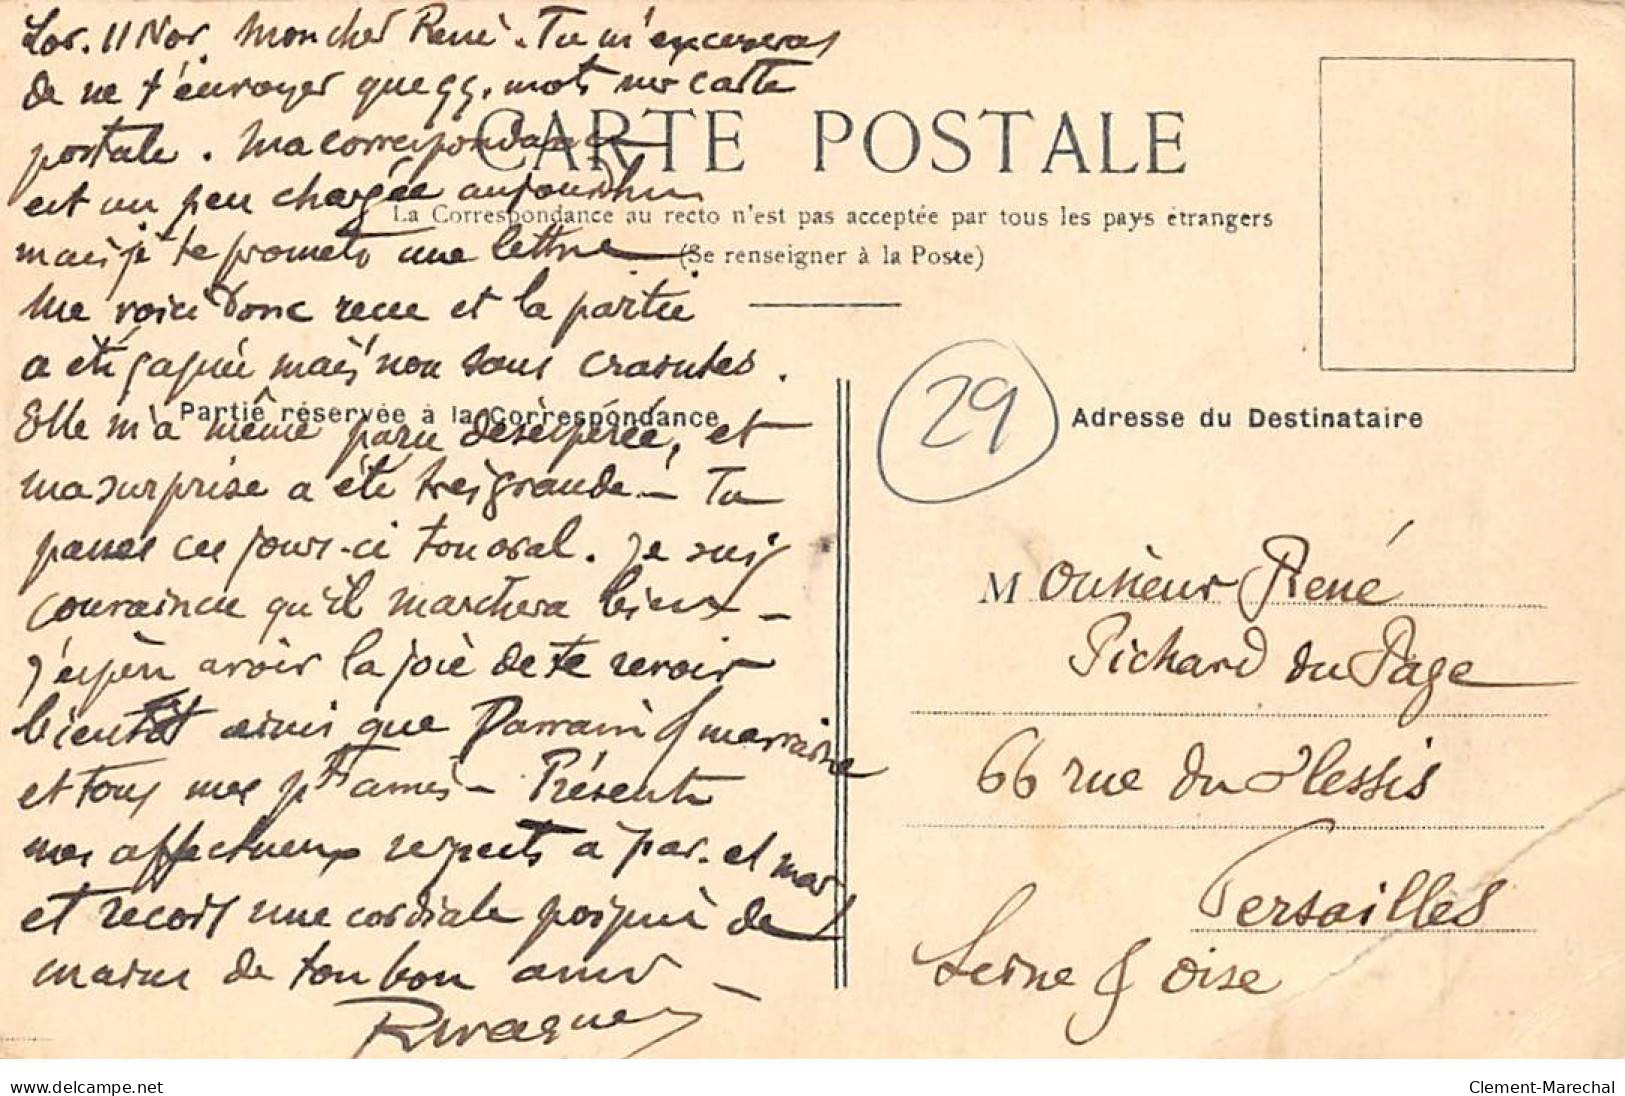 Lor. 11 Nov. Mon cher René. Tu m'excuseras
de ne t'envoyer que qq. mots sur carte
postale. Ma correspondance
est un peu chargée aujourd'hui
mais je te promets une lettre
Me voici donc recu et la partie
a été gagnée mais non sans craintes.
Elle m'a même paru désespérée, et
ma surprise a été très grande - Tu
passes ces jours-ci ton oral. Je suis
convaincu qu'il marchera bien -
J'espère avoir la joie de te revoir
bientôt ainsi que Parrain & marraine
et tous mes amis - Présente
mes affectueux respects à par. et mar
et reçois une cordiale poignée de
mains de ton bon ami -
CARTE POSTALE
La Correspondance au recto n'est pas acceptée par tous les pays étrangers
(Se renseigner à la Poste)
Partie réservée à la Correspondance
29
Adresse du Destinataire
Monsieur René
Pichard du Page
66 rue du Plessis
Versailles
Seine & Oise
www.delcampe.net
Clement-Marechal